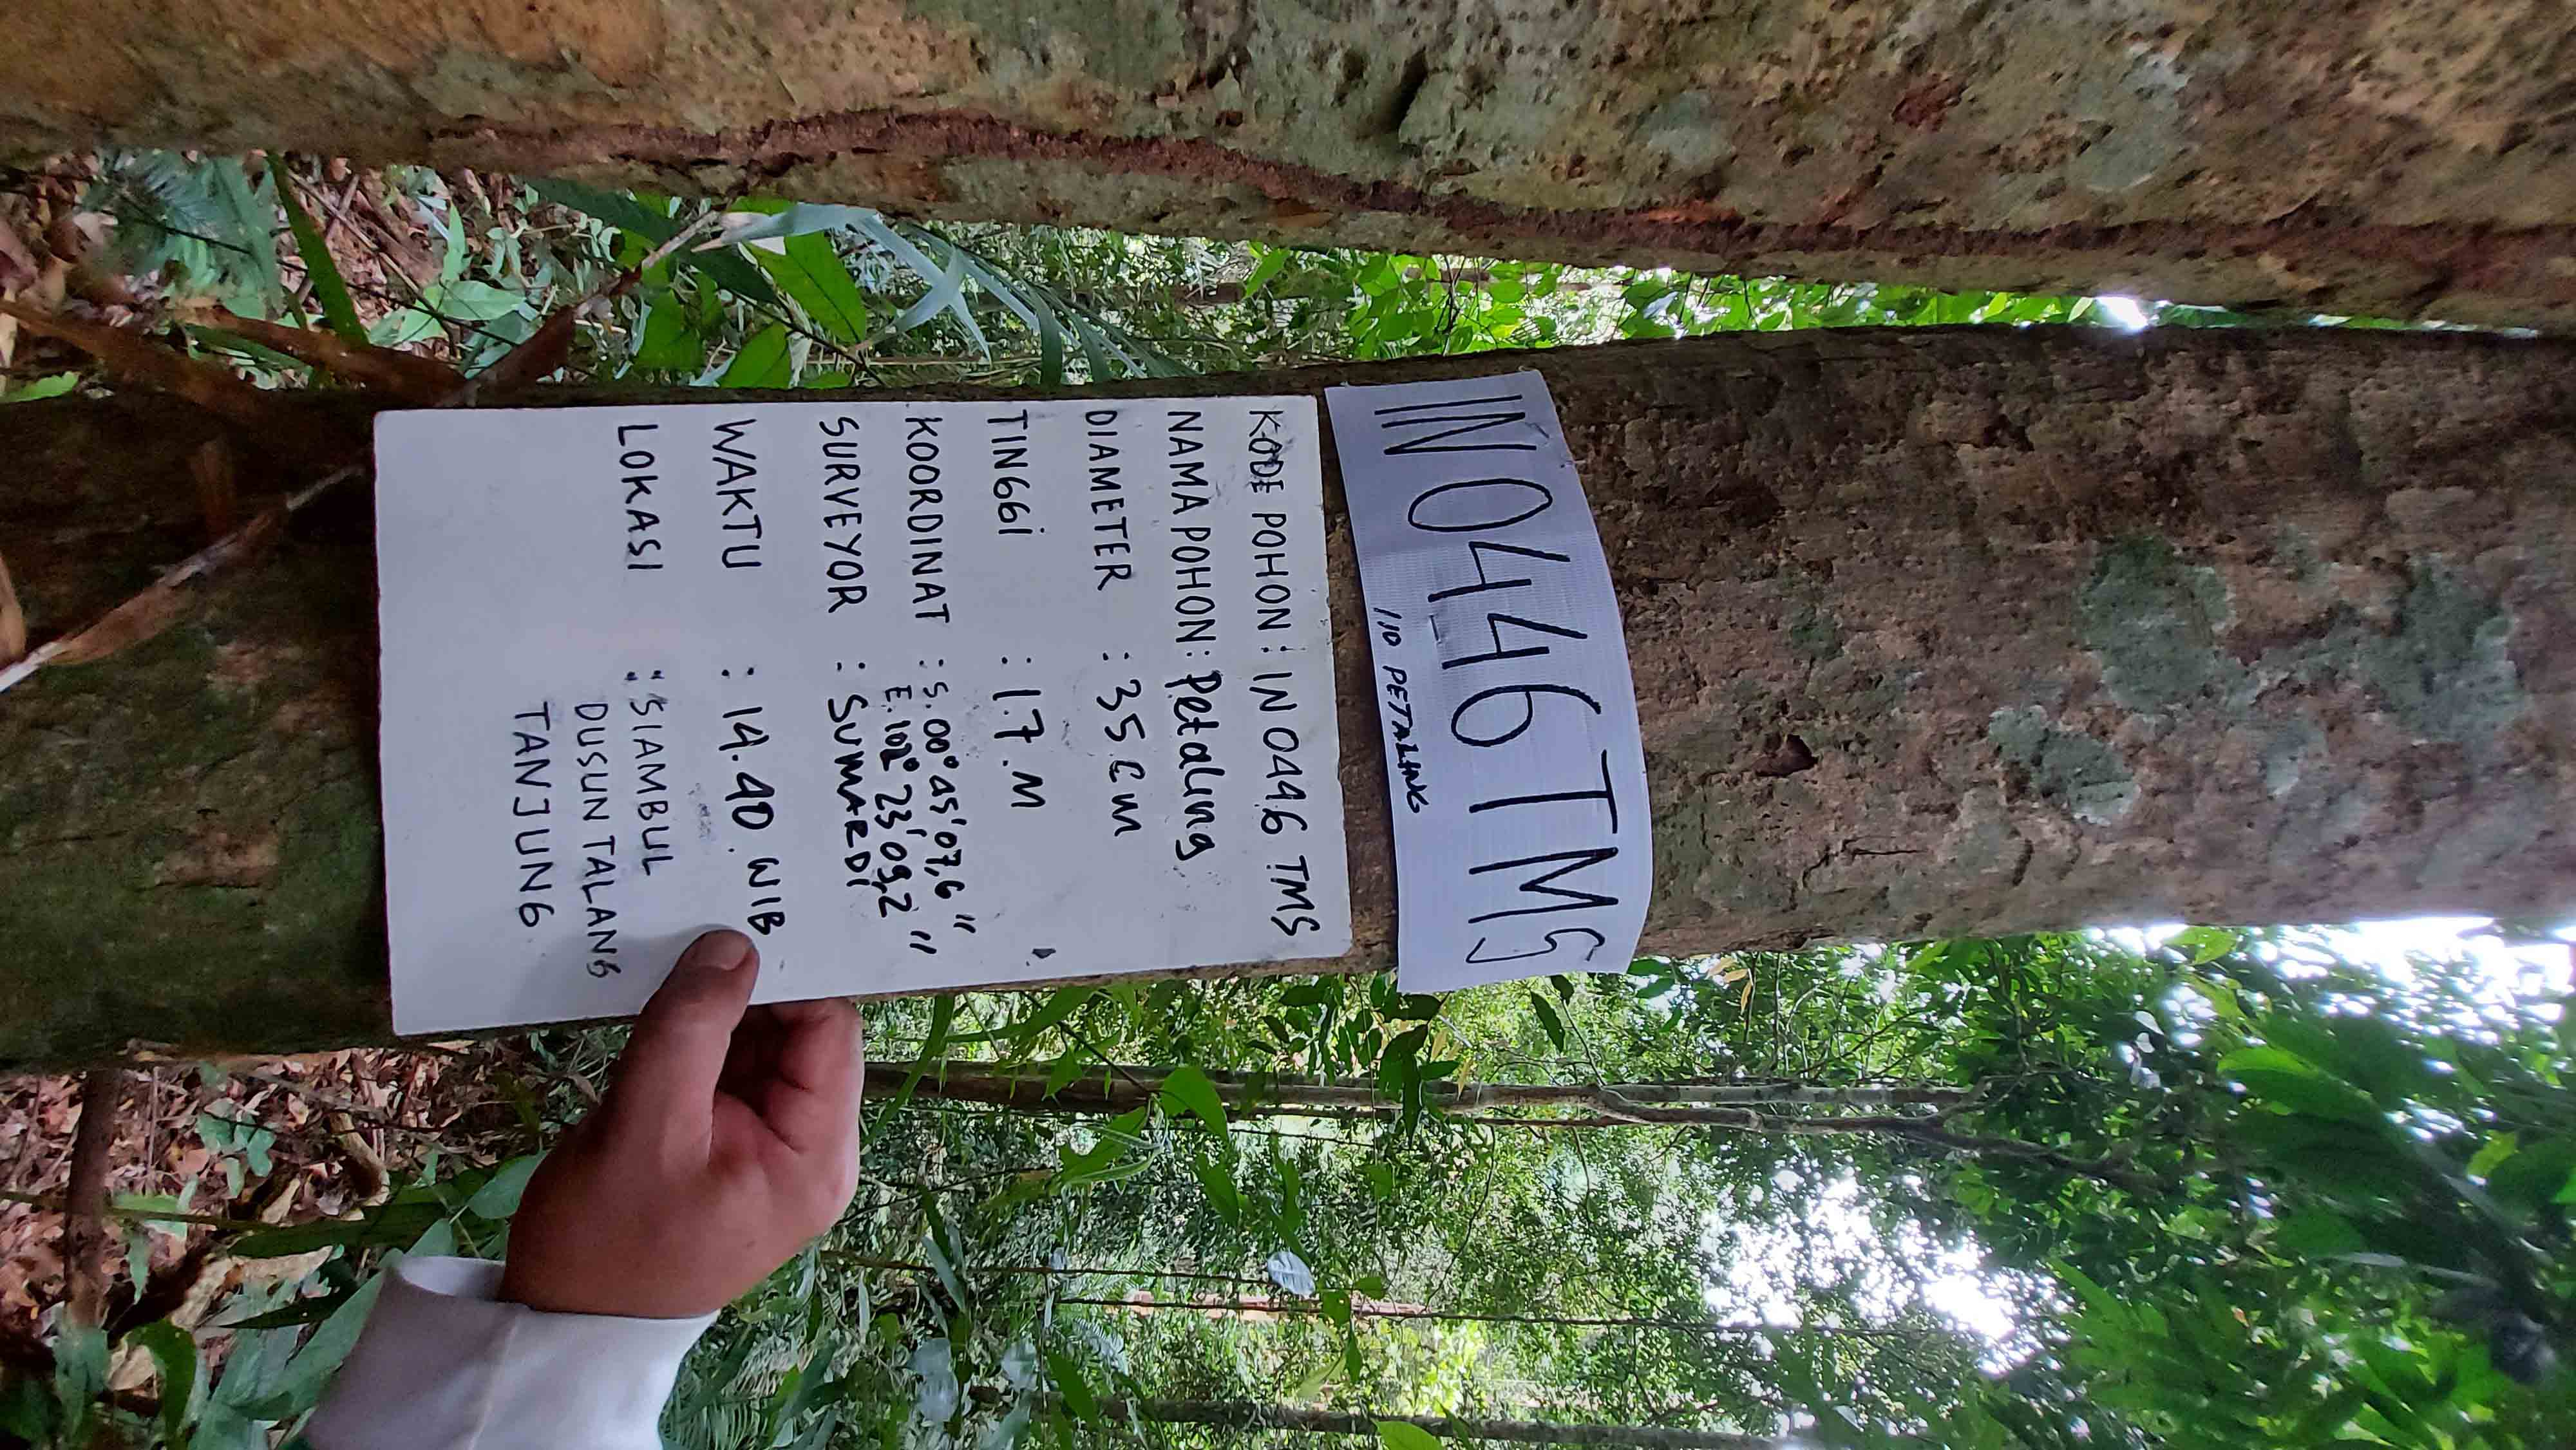 IN 0446 TMS
110 PETALING
KODE POHON : IN 0446 TMS
NAMA POHON : Petaling
DIAMETER : 35 Cm
TINGGi : 17. M
KOORDINAT : S. 00° 45' 07,6 "
E. 102° 23' 09,2 "
SURVEYOR : SUMARDi
WAKTU : 14.40 WIB
LOKASI : SIAMBUL
DUSUN TALANG
TANJUNG